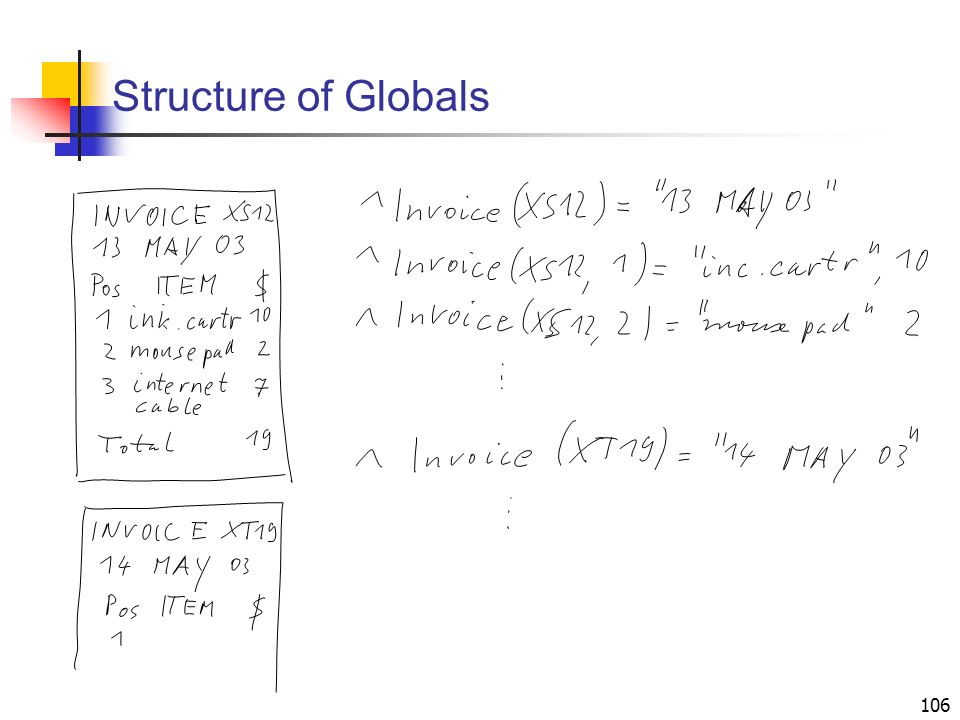 Structure of Globals
INVOICE XS12
13 MAY 03
Pos ITEM $
1 ink.cartr 10
2 mousepad 2
3 internet 7
cable
Total 19
INVOICE XT19
14 MAY 03
Pos ITEM $
1
^Invoice(XS12) = "13 MAY 03"
^Invoice(XS12, 1) = "inc.cartr", 10
^Invoice(XS12, 2) = "mouse pad" 2
⋮
^Invoice (XT19) = "14 MAY 03"
⋮
106